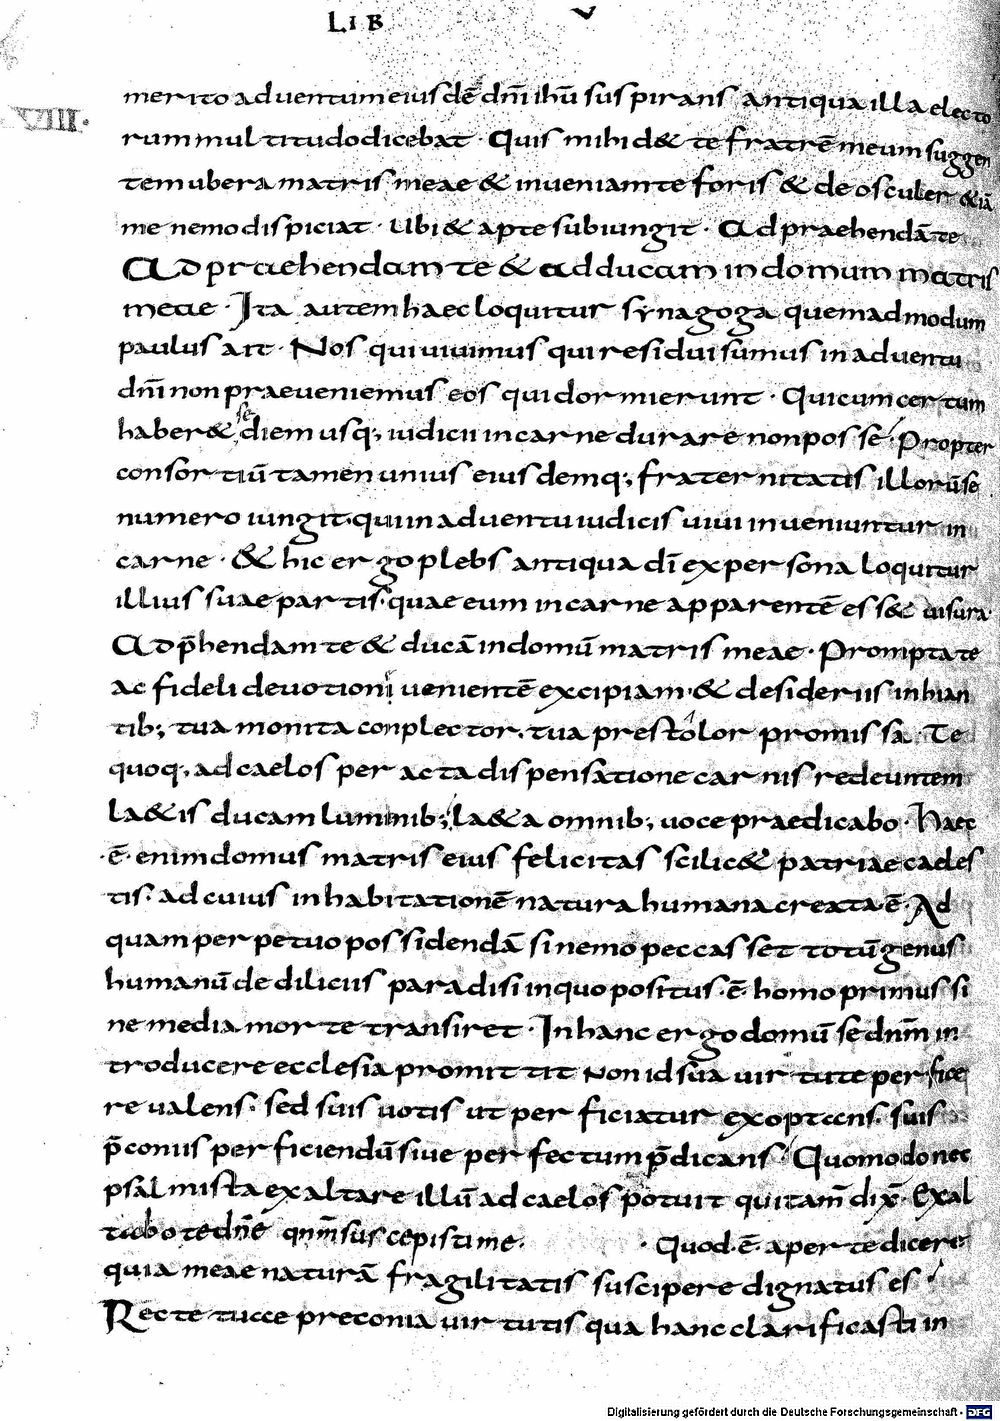 LIB V
XVIII.
merito aduentum eiusdē dn̄i ih̄u suspirans antiqua illa electo
rum multitudo dicebat · Quis mihi d& te fratrē meum suggen
tem ubera matris meae & inueniam te foris & deosculer & iā
me nemo dispiciat · Ubi & apte subiungit · Adpraehendā te
Adpraehendam te & adducam in domum matris
meae · Ita autem haec loquitur synagoga quemadmodum
paulus ait · Nos qui uiuimus qui residui sumus in aduentu
dn̄i non praeueniemus eos qui dormierunt · Qui cum certum
haber& se diem usq; iudicii in carne durare non posse · Propter
consortiū tamen unius eiusdemq; fraternitatis illorū se
numero iungit · qui in aduentu iudicis uiui inueniuntur in
carne · & hic ergo plebs antiqua dī ex persona loquitur
illius suae partis · quae eum in carne apparentē ess& uisura·
Adp̄hendam te & ducā in domū matris meae · Prompta te
ac fideli deuotioni uenientē excipiam · & desideriis inhian
tib; tua monita conplector, tua prestolor promissa · Te
quoq, ad caelos peracta dispensatione carnis redeuntem
la&is ducam luminib; la&a omnib; uoce praedicabo · Haec
·ē· enim domus matris eius felicitas scilic& patriae caeles
tis · ad cuius inhabitationē natura humana creata ·ē· Ad
quam perpetuo possidendā si nemo peccasset totū genus
humanū de diliciis paradisi in quo positus ·ē· homo primus si
ne media morte transiret · In hanc ergo domū se dnm̄ in
troducere ecclesia promittit Non id sua uirtute perfice
re ualens · sed suis uotis ut perficiatur exoptans · suis
p̄coniis perficiendū siue perfectum p̄dicans · Quomodo nec
psalmista exaltare illū ad caelos potuit qui tam̄ dix̄· Exal
tabo te dn̄e qnm̄ suscepisti me · · Quod ·ē· aperte dicere
quia meae naturā fragilitatis suscipere dignatus es
Recte tuae preconia uirtutis qua hanc clarificasti in
Digitalisierung gefördert durch die Deutsche Forschungsgemeinschaft - DFG